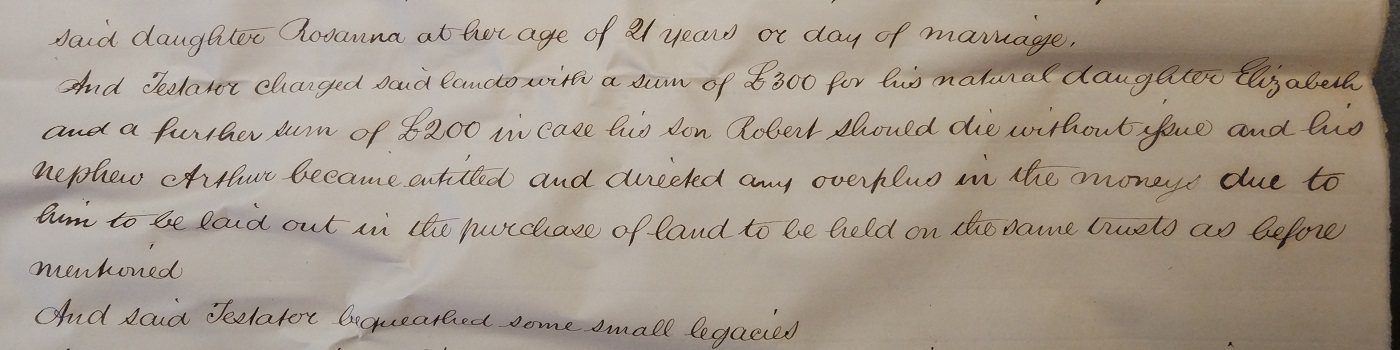 said daughter Rosanna at her age of 21 years or day of marriage.
And Testator charged said lands with a sum of £300 for his natural daughter Elizabeth
and a further sum of £200 in case his son Robert should die without issue and his
nephew Arthur became entitled and directed any overplus in the moneys due to
him to be laid out in the purchase of land to be held on the same trusts as before
mentioned
And said Testator bequeathed some small legacies